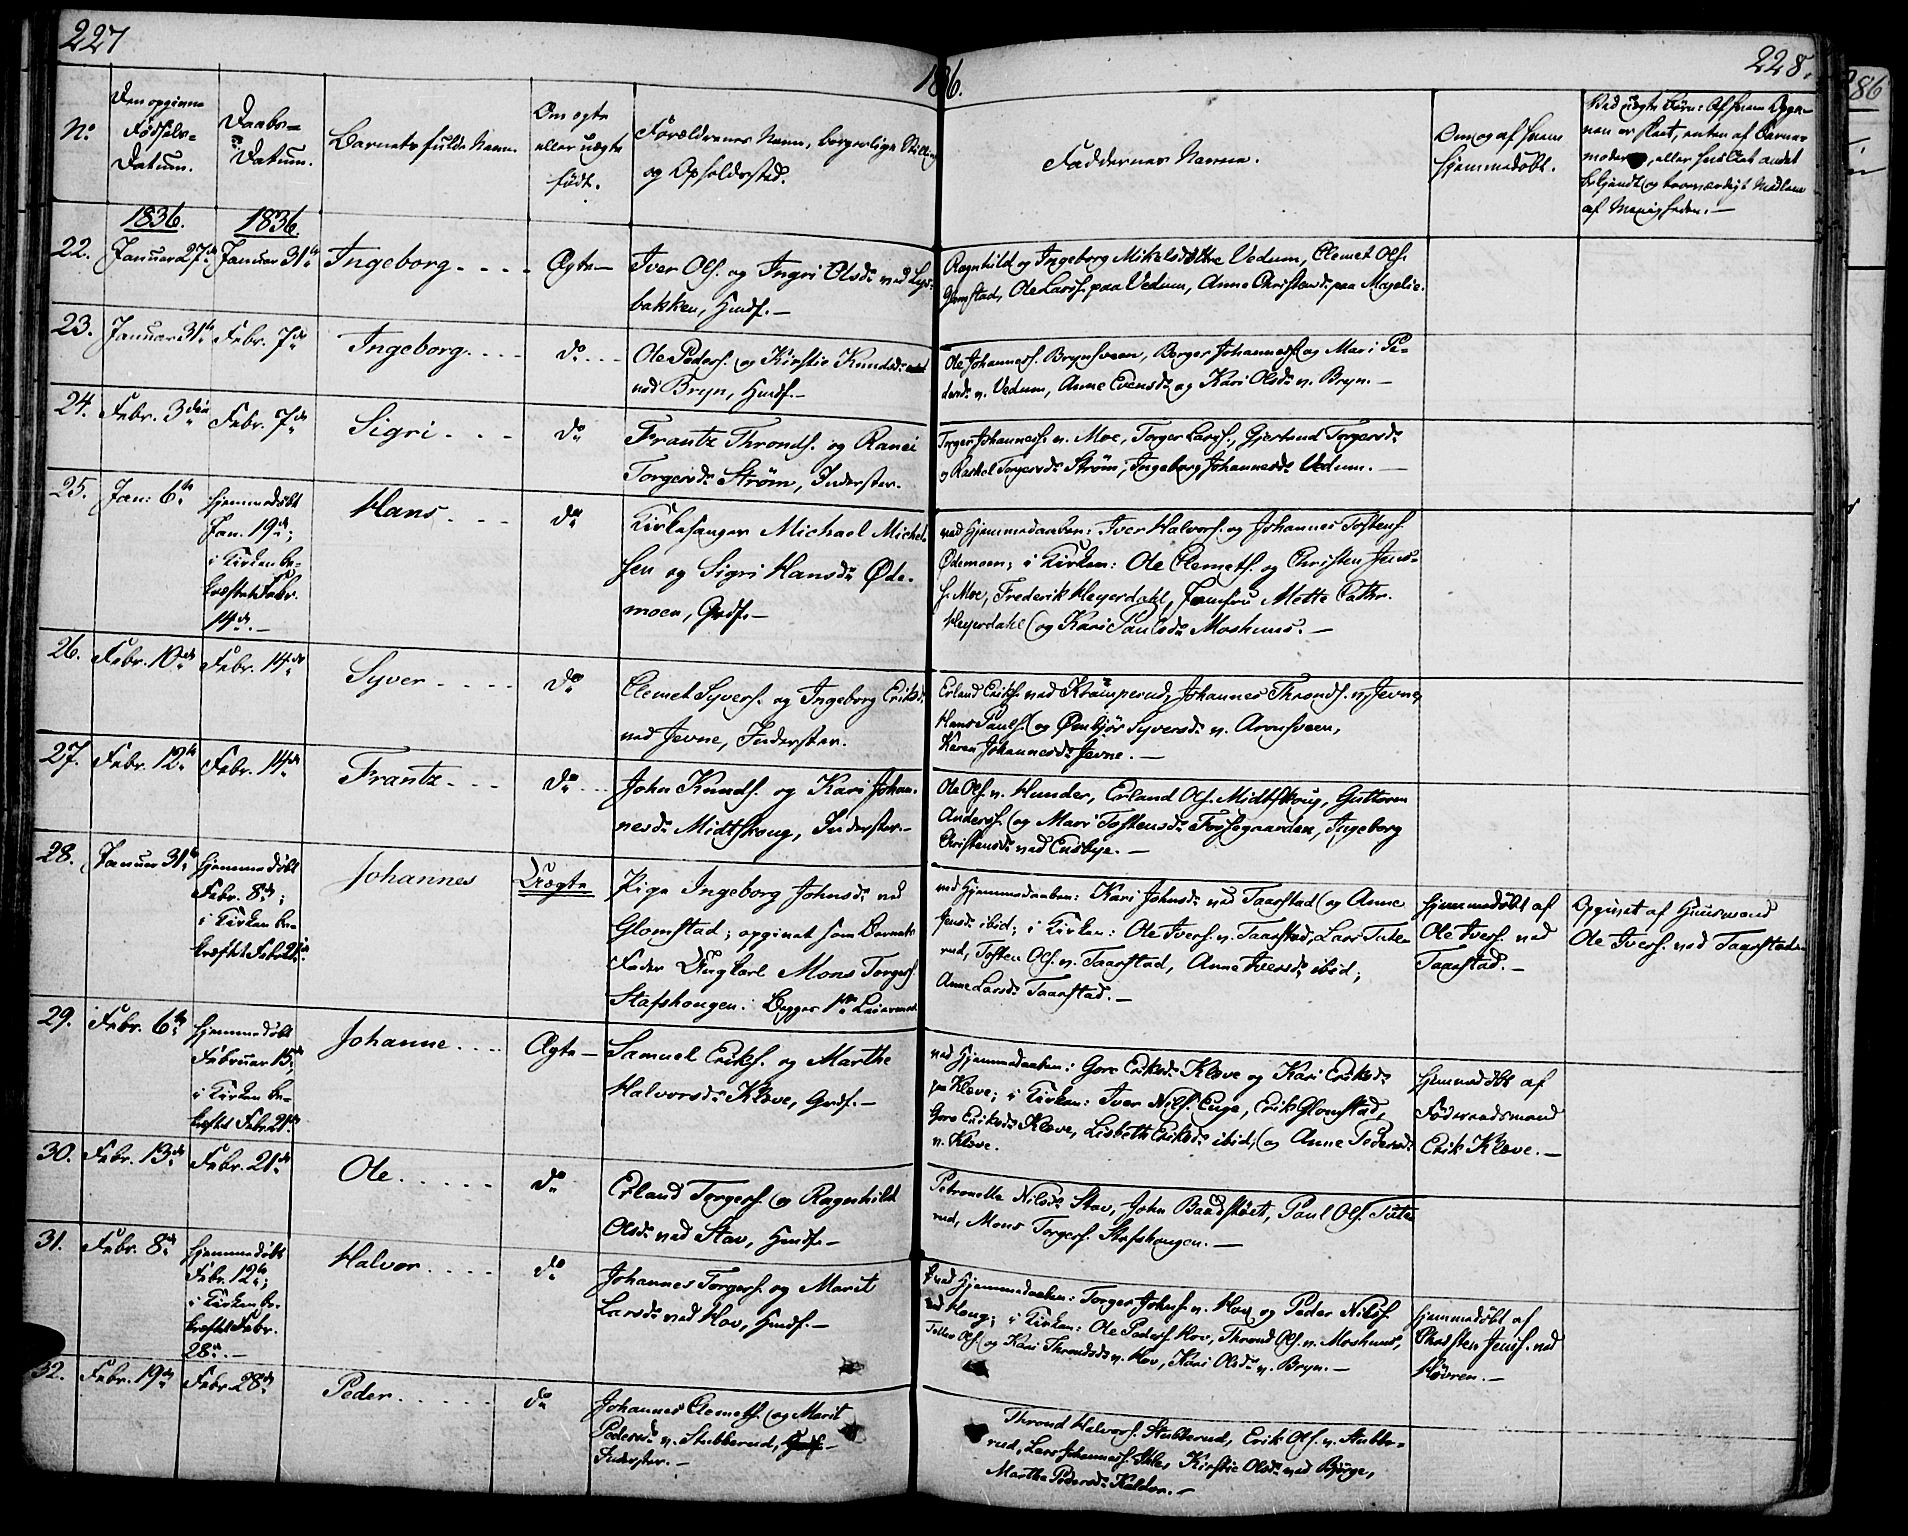 227
1836.
228.
No
Den opgivne
Fødsels-
Datum.
Daabs-
Datum.
Barnets fulde Navn.
Om ægte
eller uægte
født.
Forældrenes Navn, borgerlige Stilling
og Opholdssted.
Faddernes Navne.
Om og af hvem
hjemmedøbt.
Ved uægte Børn: Af hvem Opga-
ven er skeet, enten af Barnets
moder, eller hvilket andet
bekjendt og troværdigt Medlem
af Menigheden.—
1836.
1836.
22.
Januar 27de
Januar 31te
Ingeborg....
Ægte—
Iver Ols. og Ingri Olsdr ved Lys-
bakken, Hmdf.—
Ragnhild og Ingeborg Mikelsdøttre Vedum, Clemet Ols.
Glomstad, Ole Larss. paa Vedum, Anne Christensdr paa Majelie.
23.
Januar 31te
Febr. 7de
Ingeborg....
do...
Ole Peders. og Kirstie Knudsdr
ved Bryn, Hmdf.—
Ole Johanness. Brynsveen, Berger Johanness. og Mari Pe-
dersdr v. Vedum, Anne Evensdr og Kari Olsdr v. Bryn.—
24.
Febr. 3die
Febr. 7de
Sigri...
do
Frantz Thronds. og Ranei
Torgersdr Strøm, Inderster.
Torger Johanness. v. Moe, Torger Larss., Gjertrud Torgersdr
og Rachel Torgersdr Strøm, Ingeborg Johannesdr Vedum.—
25.
Jan: 6te
hjemmedøbt
Jan. 19de;
i Kirken be-
kræftet Febr.
14de.—
Hans...
do
Kirkesanger Michael Michel-
sen og Sigri Hansdr Øde-
moen, Grdf.—
ved Hjemmedaaben: Iver Halvors. og Johannes Tostens.
Ødemoen; i Kirken: Ole Clemets. og Christen Jens-
s. Moe, Frederik Heyerdahl, Jomfru Mette Cathr.
Heyerdahl og Kari Paulsdr Moshuus.—
26.
Febr. 10de
Febr. 14de
Syver....
do
Clemet Syvers. og Ingeborg Eriksdr
ved Jevne, Inderster.
Erland Eriks. ved Kramperud, Johannes Thronds. v. Jevne,
Hans Pauls. og Øenbjør Syversdr v. Aronsveen,
Karen Johannesdr Jevne.—
27.
Febr. 12te
Febr. 14de
Frantz...
do...
John Knuds. og Kari Johan-
nesdr Midtskoug, Inderster.—
Ole Ols. v. Hunder, Erland Ols. Midtskoug, Guttorm
Anders. og Mari Tostensdr Fossegaarden, Ingeborg
Christensdr ved Ensbye.—
28.
Januar 31te
hjemmedøbt
Febr. 8de;
i Kirken be-
kræftet Febr. 21de
Johannes
Uægte
Pige Ingeborg Johnsdr ved
Glomstad; opgivet som Barnets
Fader Ungkarl Mons Torgers.
Stafshougen: Begges 1ste Leiermaal
ved Hjemmedaaben: Kari Johnsdr ved Taarstad og Anne
Jensdr ibid; i Kirken: Ole Ivers. v. Taarstad, Lars Tute-
rud, Tosten Ols. v. Taarstad, Anne Iversdr ibid;
Anne Larsdr Taarstad.—
hjemmedøbt af
Ole Ivers. ved
Taarstad.—
Opgivet af Huusmand
Ole Ivers. ved Taarstad
29.
Febr. 6te
hjemmedøbt
Februar 15de;
i Kirken be-
kræftet Febr. 21de
Johanne....
Ægte—
Samuel Eriks. og Marthe
Halvorsdr Kleve, Grdf.—
ved Hjemmedaaben: Gore Eriksdr Kleve og Kari Eriksdr
paa Kleve; i Kirken: Iver Nils. Enge, Erik Glomstad,
Gore Eriksdr Kleve, Lisbeth Eriksdr ibid, og Anne Pedersdr
v. Kleve.
hjemmedøbt af
Føderaadsmand
Erik Kleve.—
30.
Febr. 13de
Febr. 21de
Ole.....
do
Erland Torgers. og Ragnhild
Olsdr ved Stav, Hmdf.—
Petronelle Nilsdr Stav, John Baadstøet, Paul Ols. Tute-
rud, Mons Torgers. Stafshougen.—
31.
Febr. 8de
hjemmedøbt
Febr. 12te;
i Kirken be-
kræftet Febr.
28de.—
Halvor....
do
Johannes Torgers. og Marit
Larsdr ved Hov, Hmdf.—
ved Hjemmedaaben: Torger Johns. v. Hov og Peder Nils.
ved Houg; i Kirken: Ole Peders. Hov, Thrond Ols. v. Moshuus,
Tollev Ols. og Kari Throndsdr v. Hov, Kari Olsdr v. Bryn.—
hjemmedøbt af
Christen Jens. ved
Høvren.—
32.
Febr. 19de
Febr. 28de
Peder.....
do
Johannes Clemets. og Marit
Pedersdr v. Stubberud,
Inderster.—
Thrond Halvors. Stubberud, Erik Ols. v. Stubbe-
rud, Lars Johanness. Skle, Kirstie Olsdr ved Bjørge,
Marthe Pedersdr Kalder.—
86